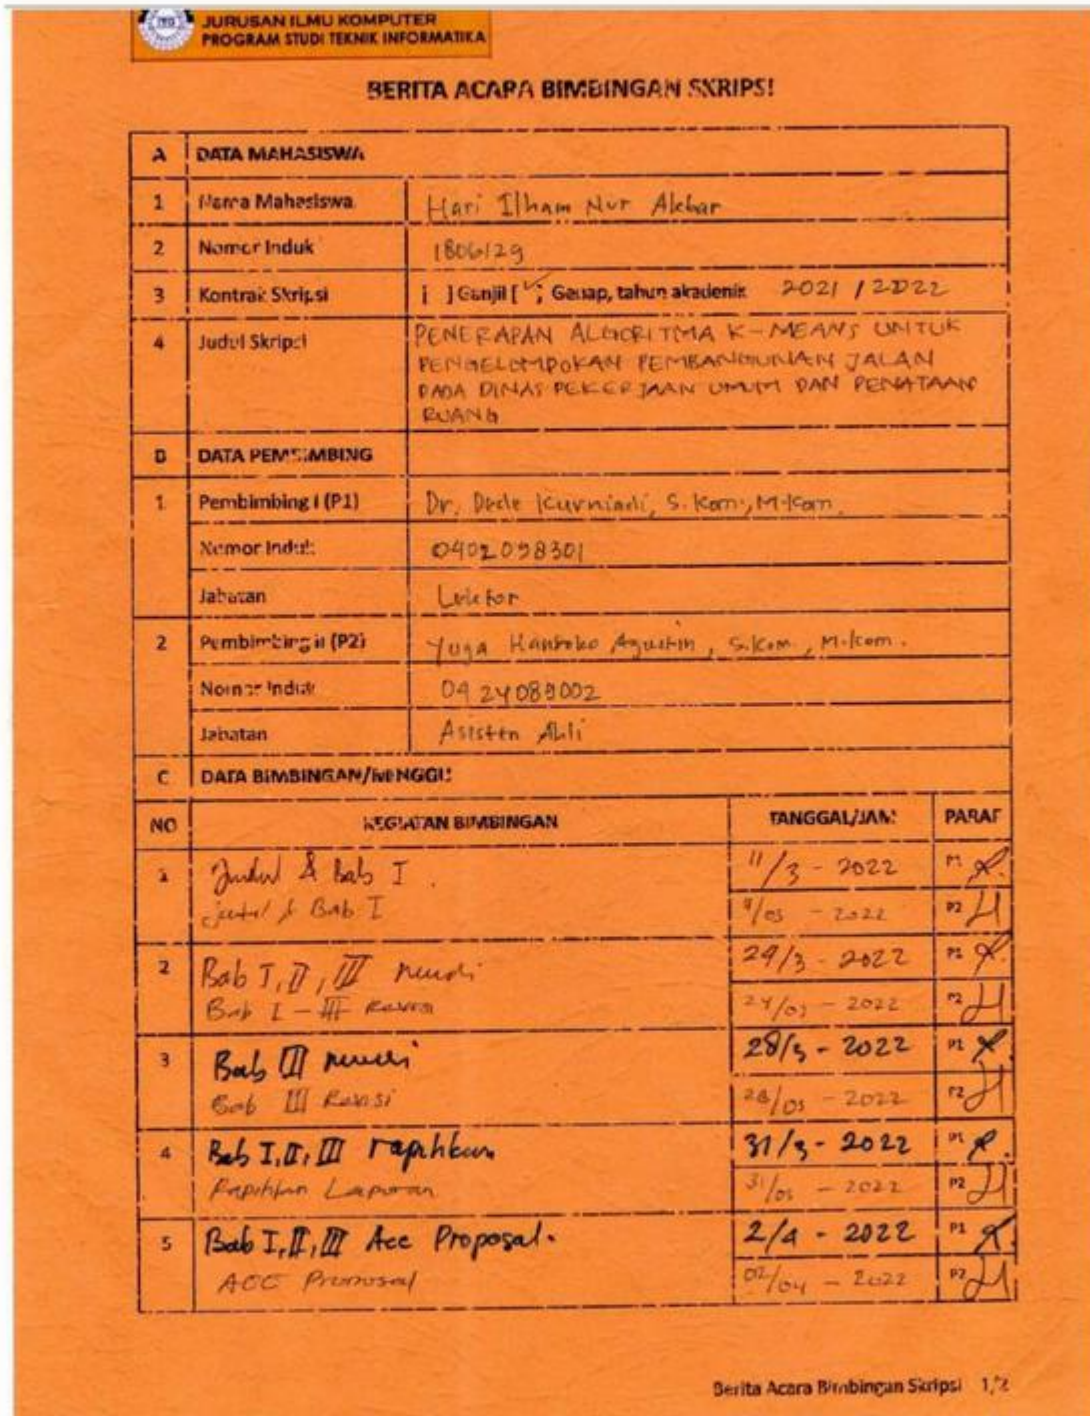 JURUSAN ILMU KOMPUTER
PROGRAM STUDI TEKNIK INFORMATIKA
BERITA ACARA BIMBINGAN SKRIPSI
A DATA MAHASISWA
1 Nama Mahasiswa Hari Ilham Nur Akbar
2 Nomor Induk 1806129
3 Kontrak Skripsi [ ] Ganjil [✓] Genap, tahun akademik 2021 / 2022
4 Judul Skripsi PENERAPAN ALGORITMA K-MEANS UNTUK
PENGELOMPOKAN PEMBANGUNAN JALAN
PADA DINAS PEKERJAAN UMUM DAN PENATAAN
RUANG
B DATA PEMBIMBING
1 Pembimbing I (P1) Dr. Dede Kurniadi, S.Kom., M.Kom.
Nomor Induk 0402098301
Jabatan Lektor
2 Pembimbing II (P2) Yuga Hanroko Agustin, S.Kom., M.Kom.
Nomor Induk 0424089002
Jabatan Asisten Ahli
C DATA BIMBINGAN/MINGGU
NO KEGIATAN BIMBINGAN TANGGAL/JAM PARAF
1 Judul & Bab I. 11/3 - 2022 P1
Judul & Bab I /03 - 2022 P2
2 Bab I, II, III revisi 24/3 - 2022 P1
Bab I - III Revisi 24/03 - 2022 P2
3 Bab III revisi 28/3 - 2022 P1
Bab III Revisi 28/03 - 2022 P2
4 Bab I, II, III rapihkan 31/3 - 2022 P1
Rapihkan Laporan 31/03 - 2022 P2
5 Bab I, II, III Acc Proposal. 2/4 - 2022 P1
ACC Proposal 02/04 - 2022 P2
Berita Acara Bimbingan Skripsi 1/2